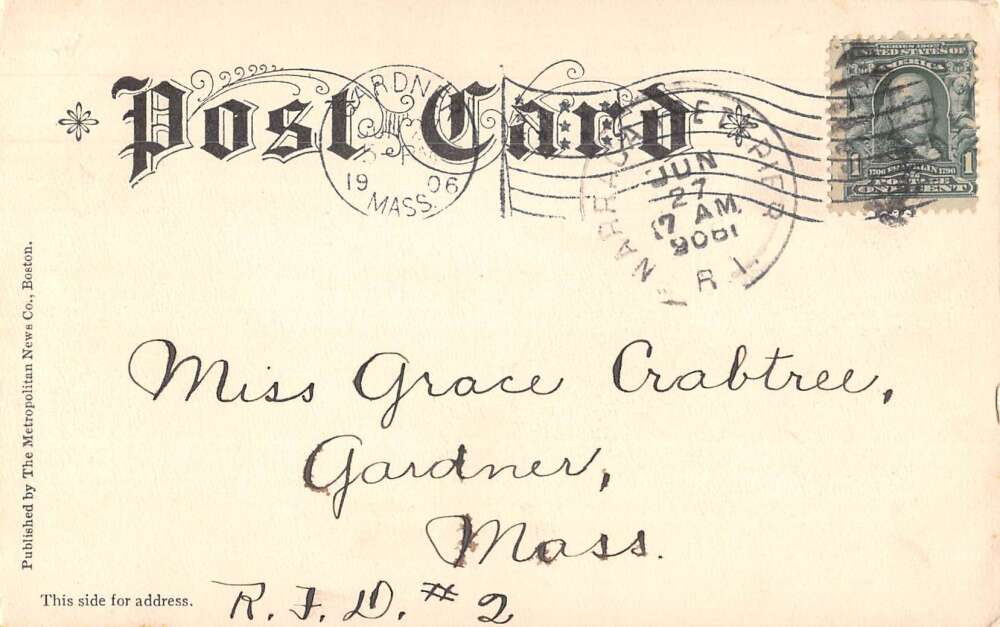 Post Card
GARDNER
19 06
MASS.
NARRAGANSETT PIER
JUN
27
7 AM
1906
R.I.
SERIES 1902
UNITED STATES OF
AMERICA
1706 FRANKLIN 1790
POSTAGE
1 1
ONE CENT
Miss Grace Crabtree,
Gardner,
Mass.
R.F.D. #2
Published by The Metropolitan News Co., Boston.
This side for address.